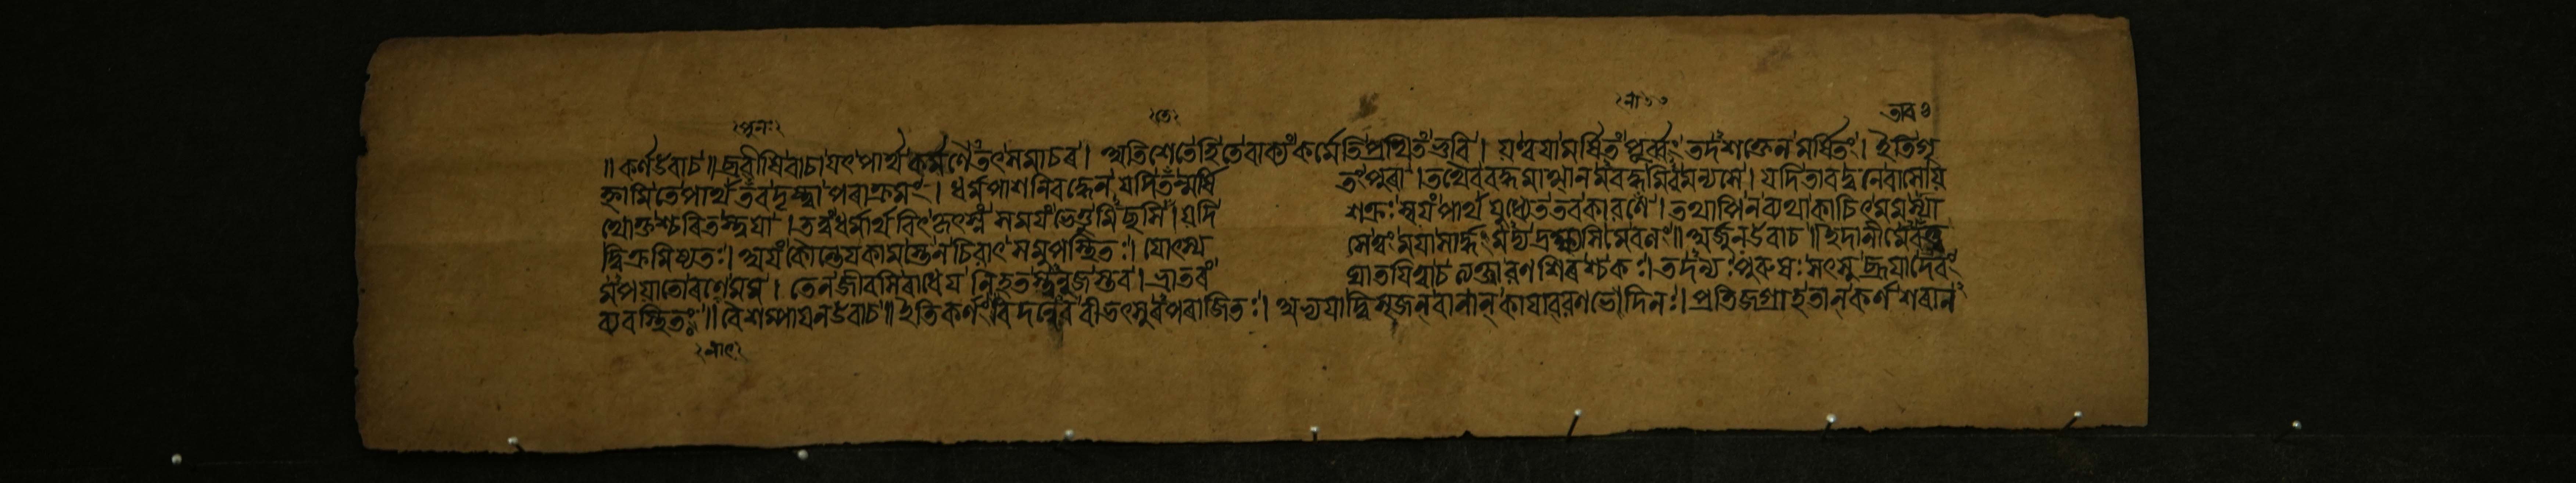 পুনঃ তে না ৩ তাব ৩
॥ কৰ্ণ উবাচ ॥ ব্ৰবীষি বাচা যৎ পাৰ্থ কৰ্মণৈতৎ সমাচৰ । অতিশেতে হি তে বাক্যং কৰ্মেতি প্ৰথিতং ভুবি । যত্ত্বযা মৰ্ষিতং পূৰ্ব্বং তদশক্তেন মৰ্ষিতং । ইতি গৃ
হ্নামি তে পাৰ্থ তব দৃষ্ট্বা পৰাক্ৰমং । ধৰ্মপাশনিবদ্ধেন যদি তন্মৰ্ষিতং পুৰা । তথৈব বদ্ধমাত্মানমবদ্ধমিব মন্যসে । যদি তাবদ্বনেবাসো য
থোক্তশ্চৰিতস্ত্বযা । তত্ত্বং ধৰ্মাৰ্থবিৎ কৃৎস্নং সমযং ভেত্তুমিছসি । যদি শক্ৰঃ স্বযং পাৰ্থ যুধ্যেত তব কাৰণে । তথাপি ন ব্যথা কাচিৎ মম স্যা
দ্বিক্ৰমিষ্যতঃ । অযং কৌন্তেয কামস্তে ন চিৰাৎ সমুপস্থিতঃ । যোৎস্যসে ত্বং মযা সাৰ্দ্ধং মদ্য দ্ৰক্ষ্যসি মে বলং ॥ অৰ্জুন উবাচ ॥ ইদানীমেবত্ত্ব
মপযাতো ৰণে মম । তেন জীবসি ৰাধেয নিহতস্ত্বনুজস্তব । ভ্ৰাতৰং ঘাতযিত্বা চ ত্যক্ত্বা ৰণশিৰশ্চ কঃ । ত্বদন্যঃ পুৰুষঃ সৎসু ব্ৰূযাদেবং
ব্যবস্থিতঃ ॥ বৈশম্পাযন উবাচ ॥ ইতি কৰ্ণং বদন্নেব বীভৎসুৰপৰাজিতঃ । অভ্যযাদ্বিসৃজন্ বানান্ কাযাবৰণভেদিনঃ । প্ৰতিজগ্ৰাহ তান্ কৰ্ণ শৰান
নাৎ